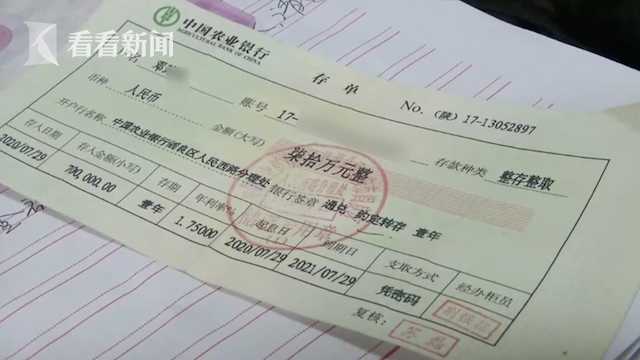 看看新闻
中国农业银行
AGRICULTURAL BANK OF CHINA
存单
No. (陕) 17-13052897
名 邓
币种 人民币 账号 17-
金额(大写) 柒拾万元整 存款种类 整存整取
开户行名称 中国农业银行 区人民西路分理处 银行签章 通兑 约定转存 壹年
存入日期 存入金额(小写) 存期 年利率% 起息日 到期日 支取方式 经办柜员
2020/07/29 700,000.00 壹年 1.75000 2020/07/29 2021/07/29 凭密码
复核: